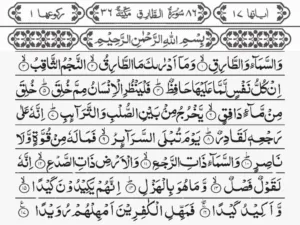 اٰیاتها ۱۷ ۸۶ سُوْرَةُ الطَّارِقِ مَكِّيَّةٌ ۳۶ رکوعها ۱
بِسْمِ اللّٰهِ الرَّحْمٰنِ الرَّحِيْمِ
وَالسَّمَآءِ وَالطَّارِقِ ۙ۱ وَمَآ اَدْرٰىكَ مَا الطَّارِقُ ۙ۲ النَّجْمُ الثَّاقِبُ ۙ۳
اِنْ كُلُّ نَفْسٍ لَّمَّا عَلَيْهَا حَافِظٌ ؕ۴ فَلْيَنْظُرِ الْاِنْسَانُ مِمَّ خُلِقَ ؕ۵ خُلِقَ
مِنْ مَّآءٍ دَافِقٍ ۙ۶ يَّخْرُجُ مِنْۢ بَيْنِ الصُّلْبِ وَالتَّرَآئِبِ ؕ۷ اِنَّهٗ عَلٰى
رَجْعِهٖ لَقَادِرٌ ؕ۸ يَوْمَ تُبْلَى السَّرَآئِرُ ۙ۹ فَمَا لَهٗ مِنْ قُوَّةٍ وَّلَا
نَاصِرٍ ؕ۱۰ وَالسَّمَآءِ ذَاتِ الرَّجْعِ ۙ۱۱ وَالْاَرْضِ ذَاتِ الصَّدْعِ ۙ۱۲ اِنَّهٗ
لَقَوْلٌ فَصْلٌ ۙ۱۳ وَّمَا هُوَ بِالْهَزْلِ ؕ۱۴ اِنَّهُمْ يَكِيْدُوْنَ كَيْدًا ۙ۱۵
وَّاَكِيْدُ كَيْدًا ۚۖ۱۶ فَمَهِّلِ الْكٰفِرِيْنَ اَمْهِلْهُمْ رُوَيْدًا ۧ۱۷